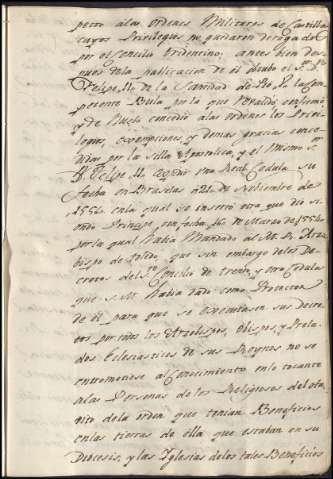 pecto a las ordenes Militares de Castilla
cuyos Privilegios no quedaron derogados
por el Concilio tridentino, antes bien des
pues de la publicacion de el obtubo el S.r D.n
Felipe II. de la Santidad de Pio IV. la Com
petente Bula, por la que revalidó, confirmó
y de nuebo concedió a las ordenes los Privi
legios, exempciones, y demas gracias conce
didas por la Silla Apostolica, y el mismo S.r
D. Felipe II. expidió una Real Cedula su
fecha en Bruselas a 21. de Noviembre de
en la qual se insertó otra que dió si
endo Principe con fecha 16 de Marzo de
por la qual havia mandado al M. R. Arzo
bispo de toledo, que sin embargo de los De
cretos del S.to Concilio de trento, y otra Cedula
que S. M. havia dado como Protector
de el para que se executasen sus decre
tos por todos los Arzobispos, obispos, y Prela
dos Eclesiasticos de sus Reynos no se
entrometiese al Conocimiento en lo tocante
a las Personas de los Religiosos del ha
vito de la orden que tenian Beneficios
en las tierras de ella que estaban en su
Diocesis, y las Iglesias de los tales Beneficios